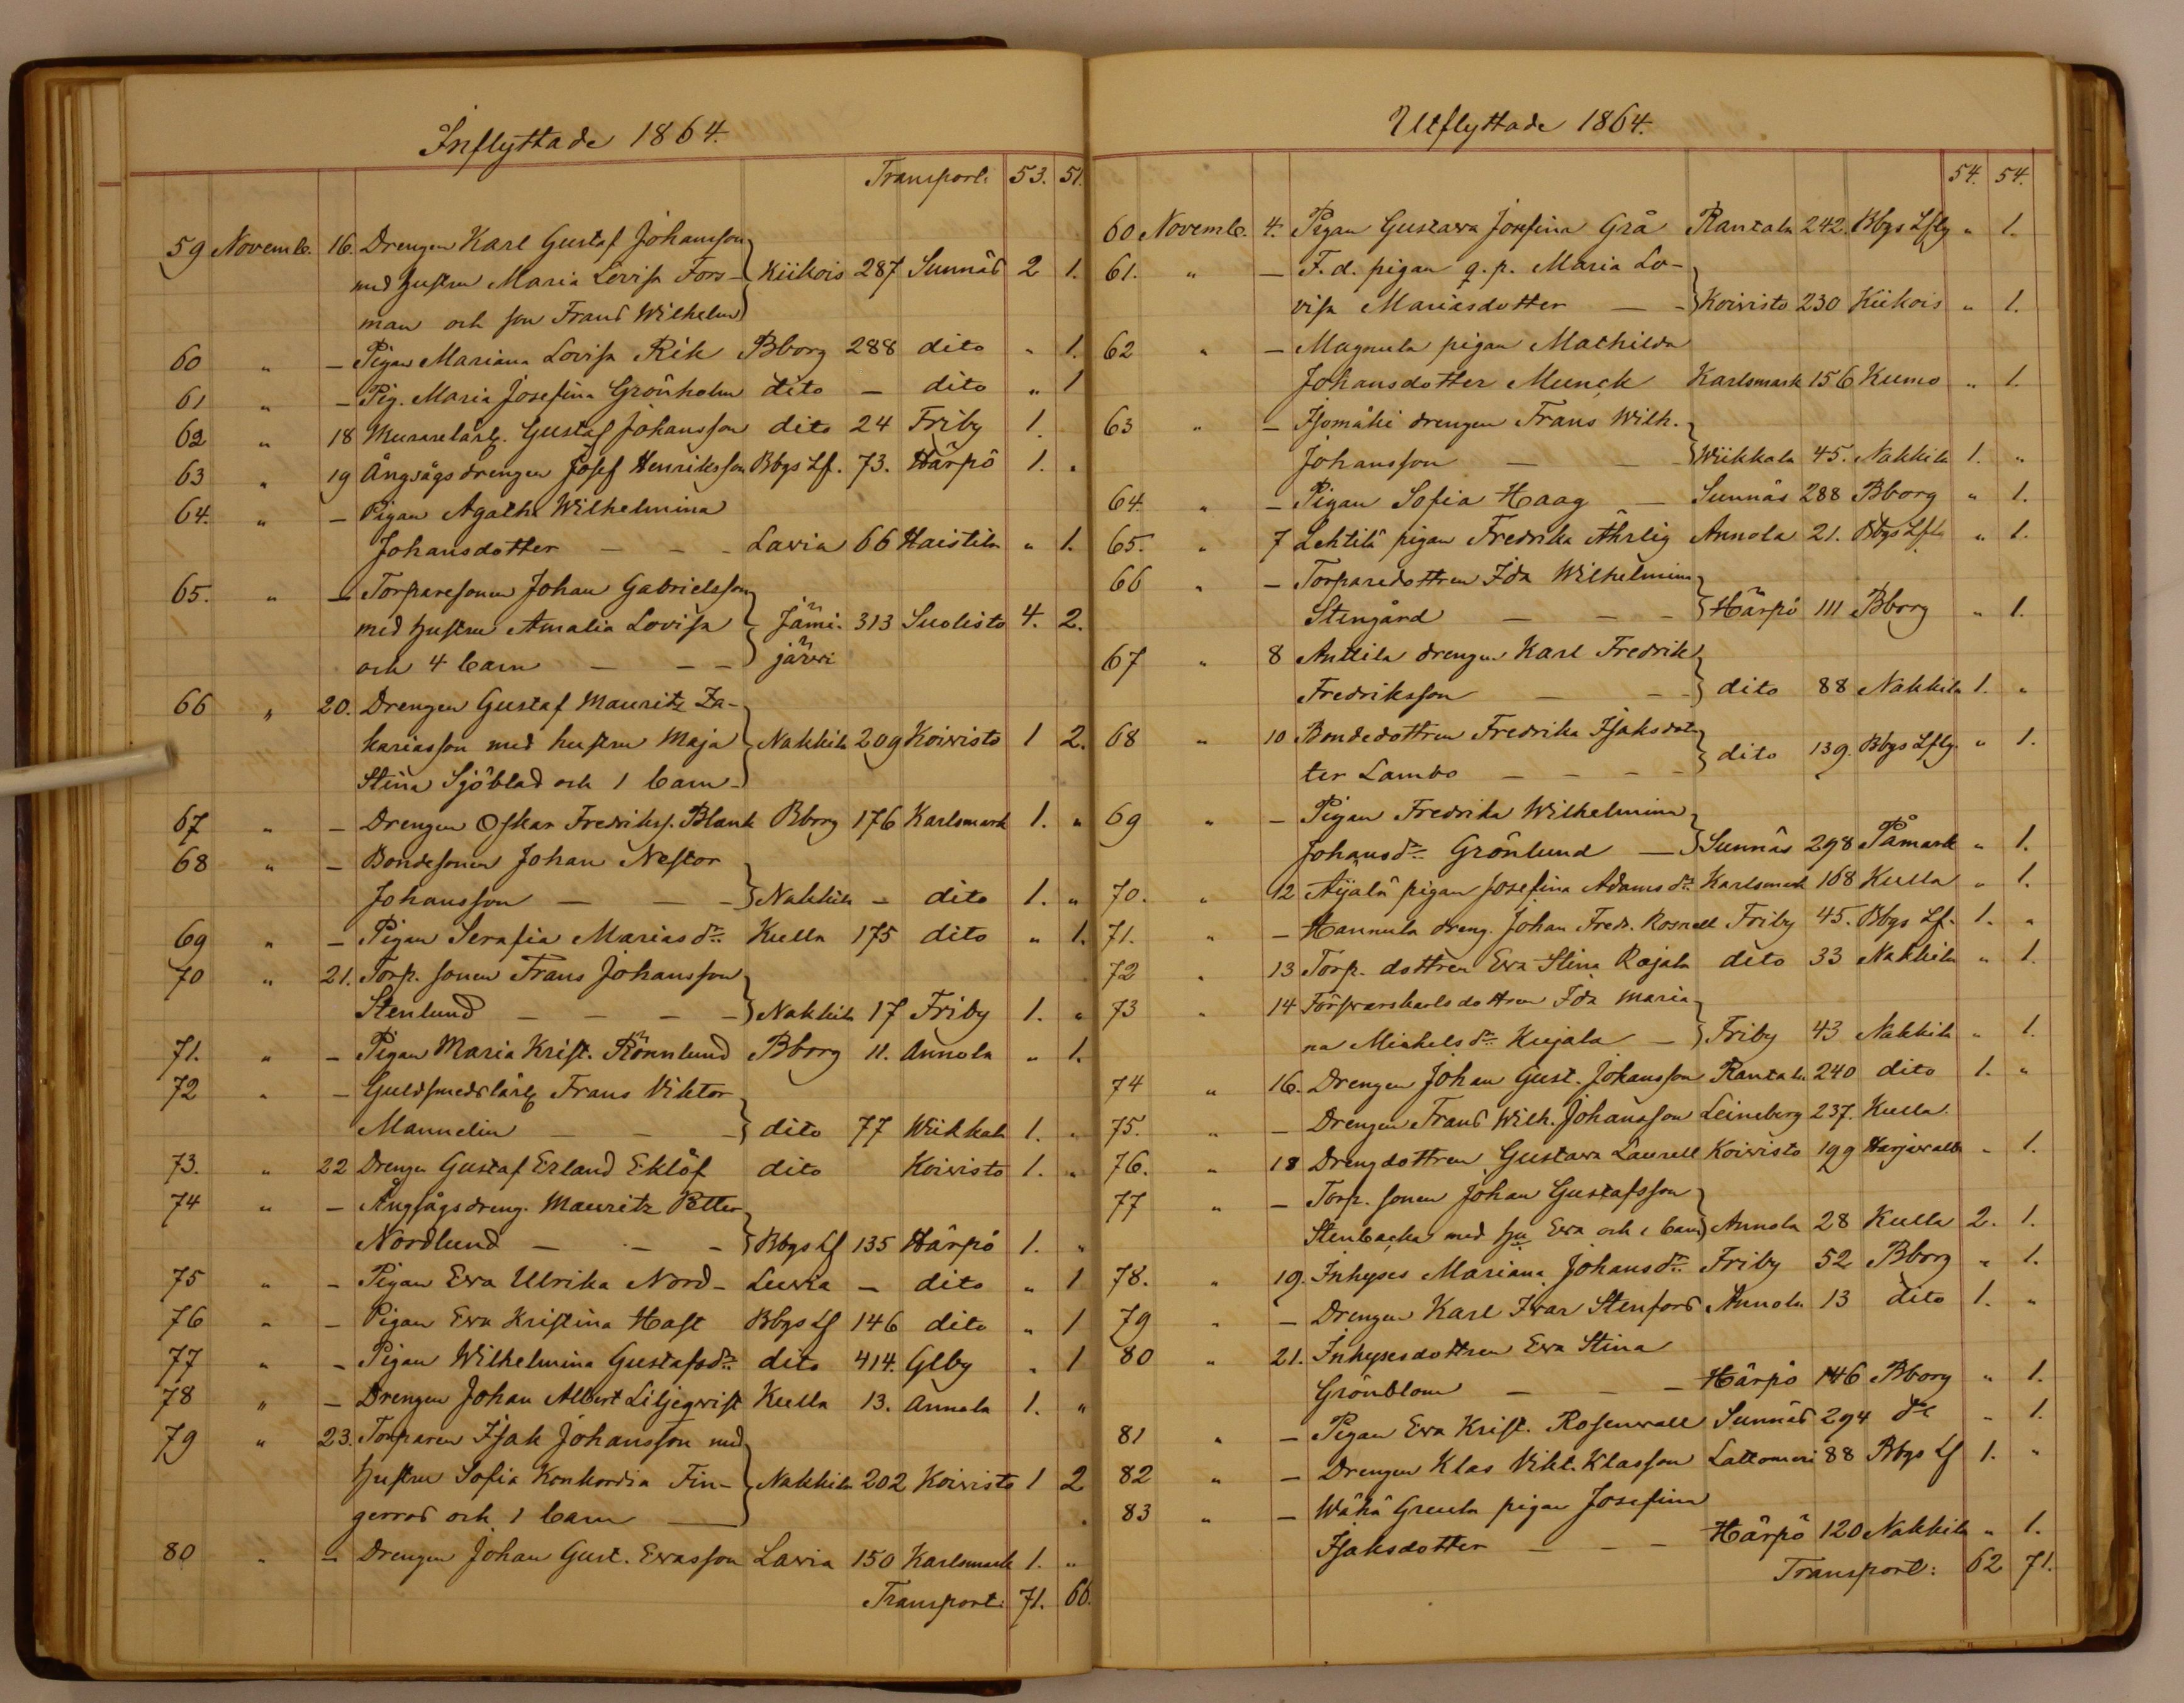 Inflyttade 1864.
Transport: 53. 51.
59 Novemb. 16. Drengen Karl Gustaf Johansson
med hustru Maria Lovisa Fors- Kiikois 287 Sunnäs 2 1.
man och son Frans Wilhelm
60 " – Pigan Mariana Lovisa Rik Bborg 288 dito " 1.
61 " – Pig. Maria Josefina Grönholm dito – dito " 1
62 " 18 Murarelärl. Gustaf Johansson dito 24 Friby 1.
63 " 19 Ångsågsdrengen Josef Henriksson Bbgs Lf. 73. Härpö 1. "
64. " – Pigan Agatha Wilhelmina
Johansdotter – – – Lavia 66 Haistila " 1.
65. " – Torparesonen Johan Gabrielsson
med hustru Amalia Lovisa Jämi- 313 Suolisto 4. 2.
och 4 barn – – – järvi
66 " 20. Drengen Gustaf Mauritz Za-
kariasson med hustru Maja Nakkila 209 Koivisto 1 2.
Stina Sjöblad och 1 barn –
67 " – Drengen Oskar Fredrikss. Blank Bborg 176 Karlsmark 1. "
68 " – Bondesonen Johan Nestor
Johansson – – – Nakkila – dito 1. "
69 " – Pigan Serafia Mariasdr. Kulla 175 dito " 1.
70 " 21. Torp. sonen Frans Johansson
Stenlund – – – – Nakkila 17 Friby 1. "
71. " – Pigan Maria Krist. Rönnlund Bborg 11. Annola " 1.
72 " – Guldsmedslärl. Frans Viktor
Mannelin – – – dito 77 Wiikkala 1. "
73. " 22 Drengen Gustaf Erland Eklöf dito Koivisto 1. "
74 " – Ångsågsdreng. Mauritz Petter
Nordlund – – – Bbgs Lf 135 Härpö 1. "
75 " – Pigan Eva Ulrika Nord – Luvia – dito " 1
76 " – Pigan Eva Kristina Hast Bbgs Lf 146 dito " 1
77 " – Pigan Wilhelmina Gustafsdr. dito 414. Glby " 1
78 " – Drengen Johan Albert Liljeqvist Kulla 13. Annola 1. "
79 " 23. Torparen Isak Johansson med
hustru Sofia Konkordia Fin- Nakkila 202 Koivisto 1 2
gerroos och 1 barn –
80 " – Drengen Johan Gust. Evasson Lavia 150 Karlsmark 1. "
Transport: 71. 66.
Utflyttade 1864.
54. 54.
60 Novemb. 4. Pigan Gustava Josefina Grå Rantala 242. Bbgs Lflg " 1.
61. " – F.d. pigan q.p. Maria Lo-
visa Mariasdotter – – Koivisto 230 Kiikois " 1.
62 " – Magnula pigan Mathilda
Johansdotter Munck Karlsmark 156 Kumo " 1.
63 " – Isomäki drengen Frans Wilh.
Johansson – – Wiikkala 45. Nakkila 1. "
64 " – Pigan Sofia Haag – Sunnäs 288 Bborg " 1.
65. " 7 Lehtilä pigan Fredrika Ährlig Annola 21. Bbgs Lflg " 1.
66 " – Torparedottren Ida Wilhelmina
Stengård – – – Härpö 111 Bborg " 1.
67 " 8 Anttila drengen Karl Fredrik
Fredriksson – – – dito 88 Nakkila 1. "
68 " 10 Bondedottren Fredrika Isaksdot-
ter Lambo – – – – dito 139. Bbgs Lflg. " 1.
69 " – Pigan Fredrika Wilhelmina
Johansdr. Grönlund – Sunnäs 298 Påmark " 1.
70. " 12 Äijälä pigan Josefina Adamsdr. Karlsmark 168 Kulla " 1.
71. " – Hannula dreng. Johan Fredr. Rosnell Friby 45. Bbgs Lf. 1. "
72 " 13 Torp. dottren Eva Stina Rajala dito 33 Nakkila " 1.
73 " 14 Försvarskarlsdottren Ida Maria
na Mickelsdr. Kujala – Friby 43 Nakkila " 1.
74 " 16. Drengen Johan Gust. Johansson Rantala 240 dito 1. "
75. " – Drengen Frans Wilh. Johansson Leineberg 237. Kulla
76. " 18 Drengdottren Gustava Laurell Koivisto 199 Harjavalta " 1.
77 " – Torp. sonen Johan Gustafsson
Stenbacka med hu Eva och 1 barn Annola 28 Kulla 2. 1.
78. " 19. Inhyses Mariana Johansdr. Friby 52 Bborg " 1.
79 " – Drengen Karl Ivar Stenfors Annola 13 dito 1. "
80 " 21. Inhysesdottren Eva Stina
Grönblom – – – Härpö 146 Bborg " 1.
81 " – Pigan Eva Krist. Rosenvall Sunnäs 294 do " 1.
82 " – Drengen Klas Vikt. Klasson Lattomeri 88 Bbgs Lf 1. "
83 " – Wähä Greula pigan Josefina
Isaksdotter – – – Härpö 120 Nakkila " 1.
Transport: 62 71.